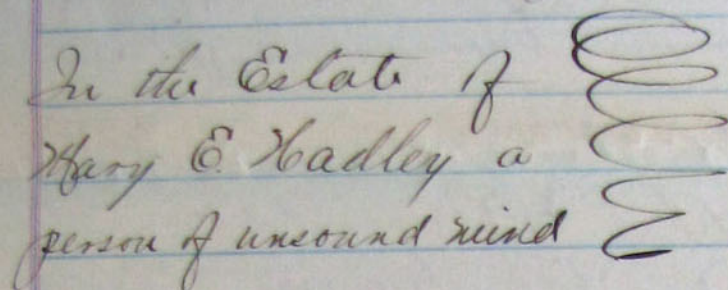 In the Estate of
Mary E. Hadley a
person of unsound mind